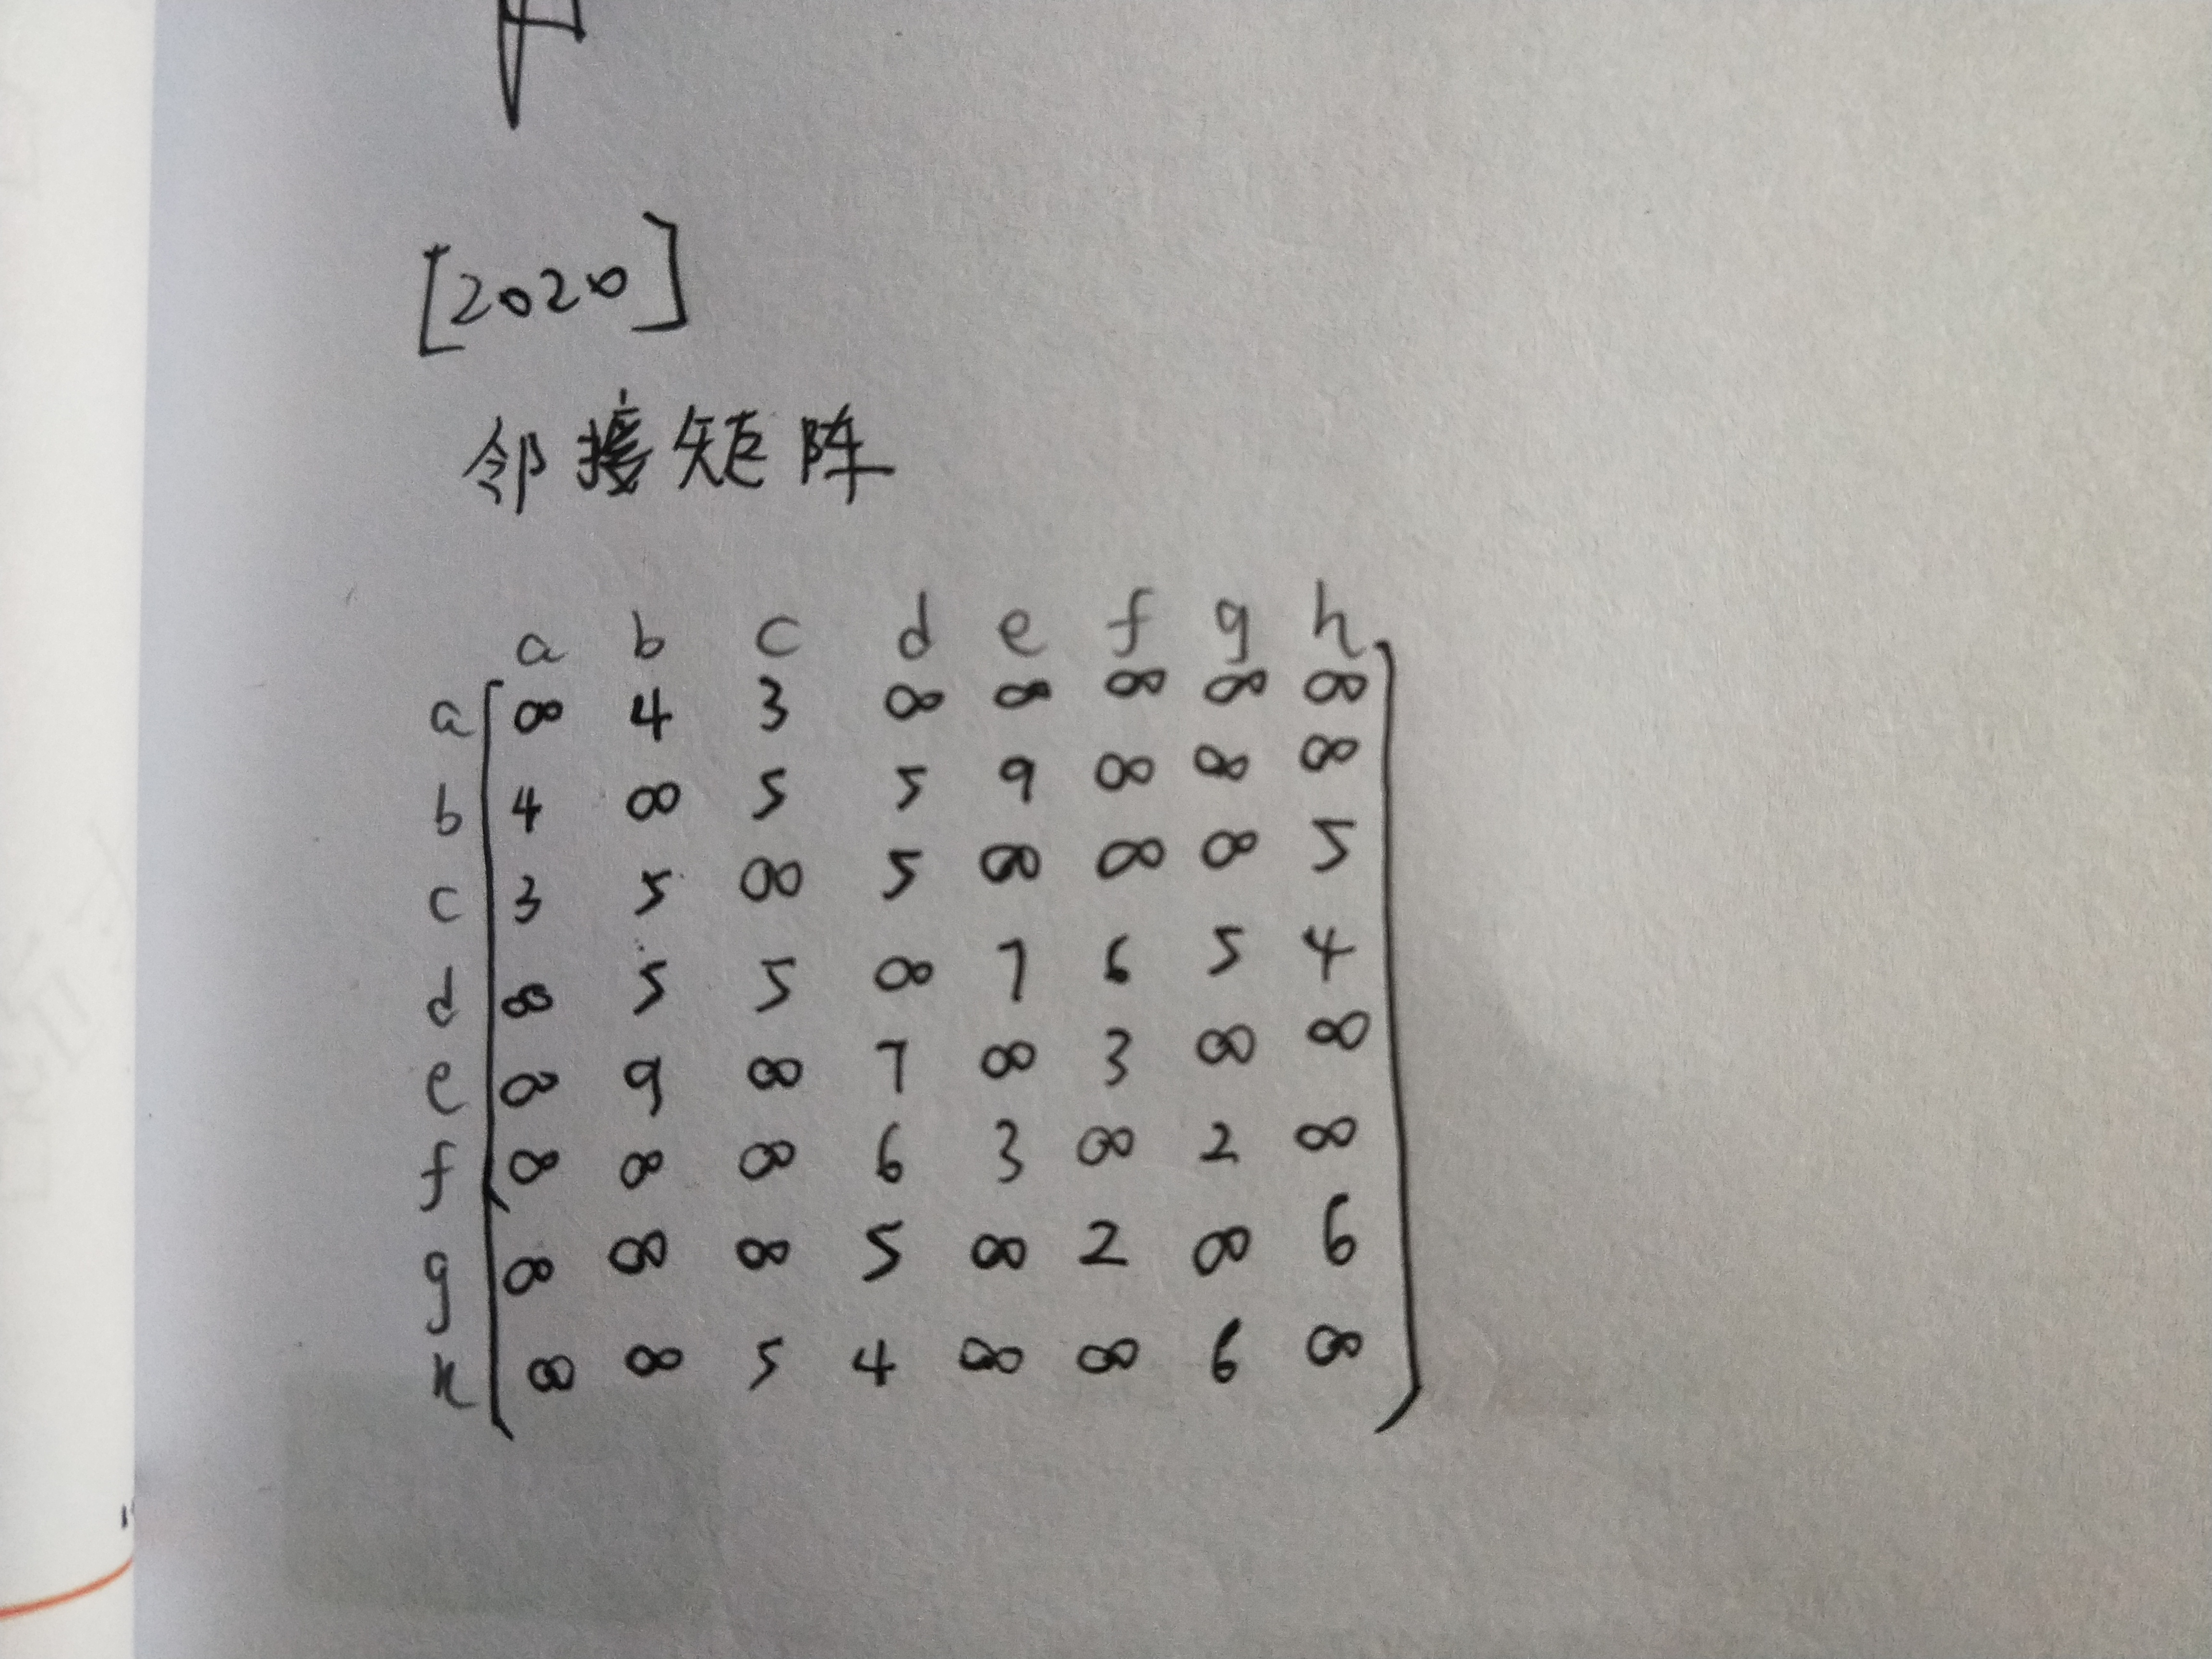 [2020]
邻接矩阵
a b c d e f g h
a ∞ 4 3 ∞ ∞ ∞ ∞ ∞
b 4 ∞ 5 5 9 ∞ ∞ ∞
c 3 5 ∞ 5 ∞ ∞ ∞ 5
d ∞ 5 5 ∞ 7 6 5 4
e ∞ 9 ∞ 7 ∞ 3 ∞ ∞
f ∞ ∞ ∞ 6 3 ∞ 2 ∞
g ∞ ∞ ∞ 5 ∞ 2 ∞ 6
h ∞ ∞ 5 4 ∞ ∞ 6 ∞